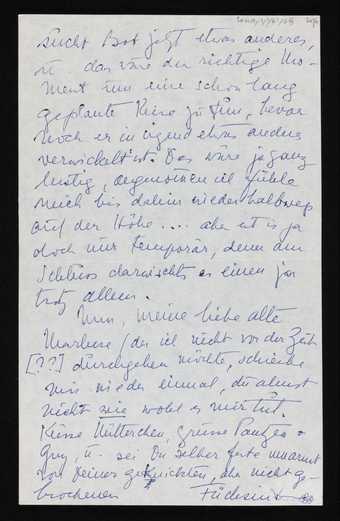 sucht Bob jetzt etwas anderes,
u. das wäre der richtige Mo-
ment um eine schon lang
geplante Reise zu tun, bevor
noch er in irgend etwas anderes
verwickelt ist. Das wäre ja ganz
lustig, angenommen ich fühle
mich bis dahin wieder halbwegs
auf der Höhe.... aber es ist ja
doch nur temporär, denn am
Schluss derwischts es einen ja
trotz allem.
Nun, meine liebe alte
(der ich nicht vor der Zeit
[??] durchgehen möchte, schreibe
mir wieder einmal, du ahnst
nicht wie wohl es mir tut.
Küsse Mütterchen, grüsse
Guy, u. sei Du selber fest umarmt
von Deiner geknickten, aber nicht ge-
brochenen Füchsin